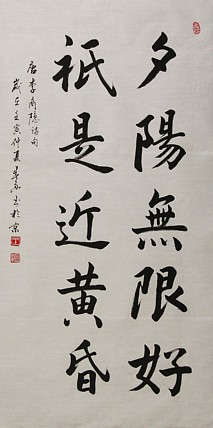 夕陽無限好
祇是近黄昏
唐李商隐詩句
歲在壬寅仲夏
書於京